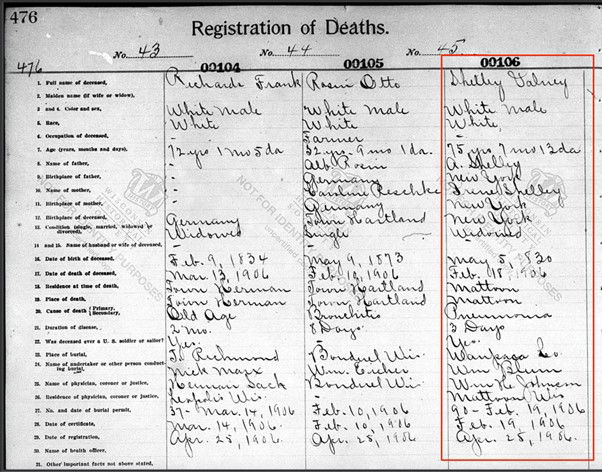 476
Registration of Deaths.
No. 43 No. 44 No. 45
476 00104 00105 00106
1. Full name of deceased, Richards Frank Rosin Otto Shelley
2. Maiden name (if wife or widow),
3 and 4. Color and sex, White Male White Male White Male
5. Race, White White White
6. Occupation of deceased, - Farmer -
7. Age (years, months and days), 72 yrs 1 mo 5 da 32 yrs. 9 mo 1 da. 75 yrs 7 mo 13 da
8. Name of father, - Alb. Rosin A. Shelley
9. Birthplace of father, - Germany New York
10. Name of mother, - Caroline Peschke Irene Shelley
11. Birthplace of mother, - Germany New York
12. Birthplace of deceased, Germany Town Hartland New York
13. Condition (single, married, widowed or divorced), Widowed Single Widowed
14 and 15. Name of husband or wife of deceased, - - -
16. Date of birth of deceased, Feb. 9, 1834 May 9, 1873 May 5, 1830
17. Date of death of deceased, Mar. 13, 1906 Feb. 10, 1906 Feb. 18, 1906
18. Residence at time of death, Town Herman Town Hartland Mattoon
19. Place of death, Town Herman Town Hartland Mattoon
20. Cause of death {Primary, Secondary, Old Age Bronchitis Pneumonia
21. Duration of disease, 2 mo. 8 Days 3 Days
22. Was deceased ever a U. S. soldier or sailor? Yes. - Yes
23. Place of burial, To. Richmond Bonduel Wis. Waupaca Co.
24. Name of undertaker or other person conducting burial, Nick Marx Wm. Eicher Wm Blum
25. Name of physician, coroner or justice, Herman Sack Bonduel Wis.
26. Residence of physician, coroner or justice, Leopolis Wis. - Mattoon Wis
27. No. and date of burial permit, 37- Mar. 14, 1906 Feb. 10, 1906 90- Feb. 19, 1906
28. Date of certificate, Mar. 14, 1906 Feb. 10, 1906 Feb. 19, 1906
29. Date of registration, Apr. 25, 1906. Apr. 25, 1906 Apr. 25, 1906.
30. Name of health officer,
31. Other important facts not above stated,